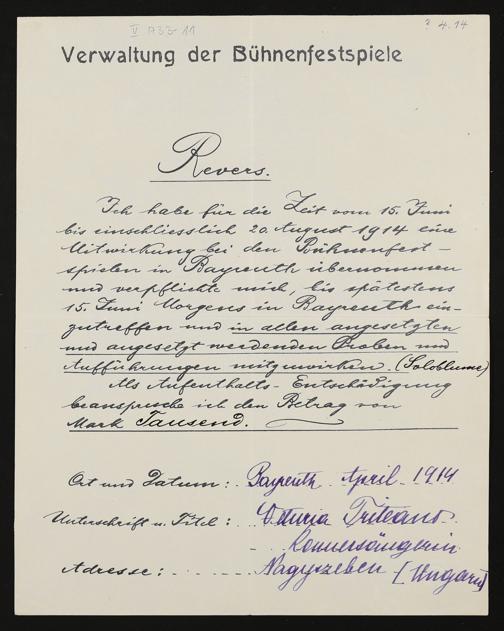 V 1733-11
? 4.14
Verwaltung der Bühnenfestspiele
Revers.
Ich habe für die Zeit vom 15. Juni
bis einschliesslich 20. August 1914 eine
Mitwirkung bei den Bühnenfest-
spielen in Bayreuth übernommen
und verpflichte mich, bis spätestens
15. Juni Morgens in Bayreuth ein-
zutreffen und in allen angesetzten
und angesetzt werdenden Proben und
Aufführungen mitzuwirken. (Soloblume)
Als Aufenthalts-Entschädigung
beanspruche ich den Betrag von
Mark Tausend.
Ort und Datum: Bayreuth. April. 1914
Unterschrift u. Titel:
Adresse: Nagyszeben (Ungarn)